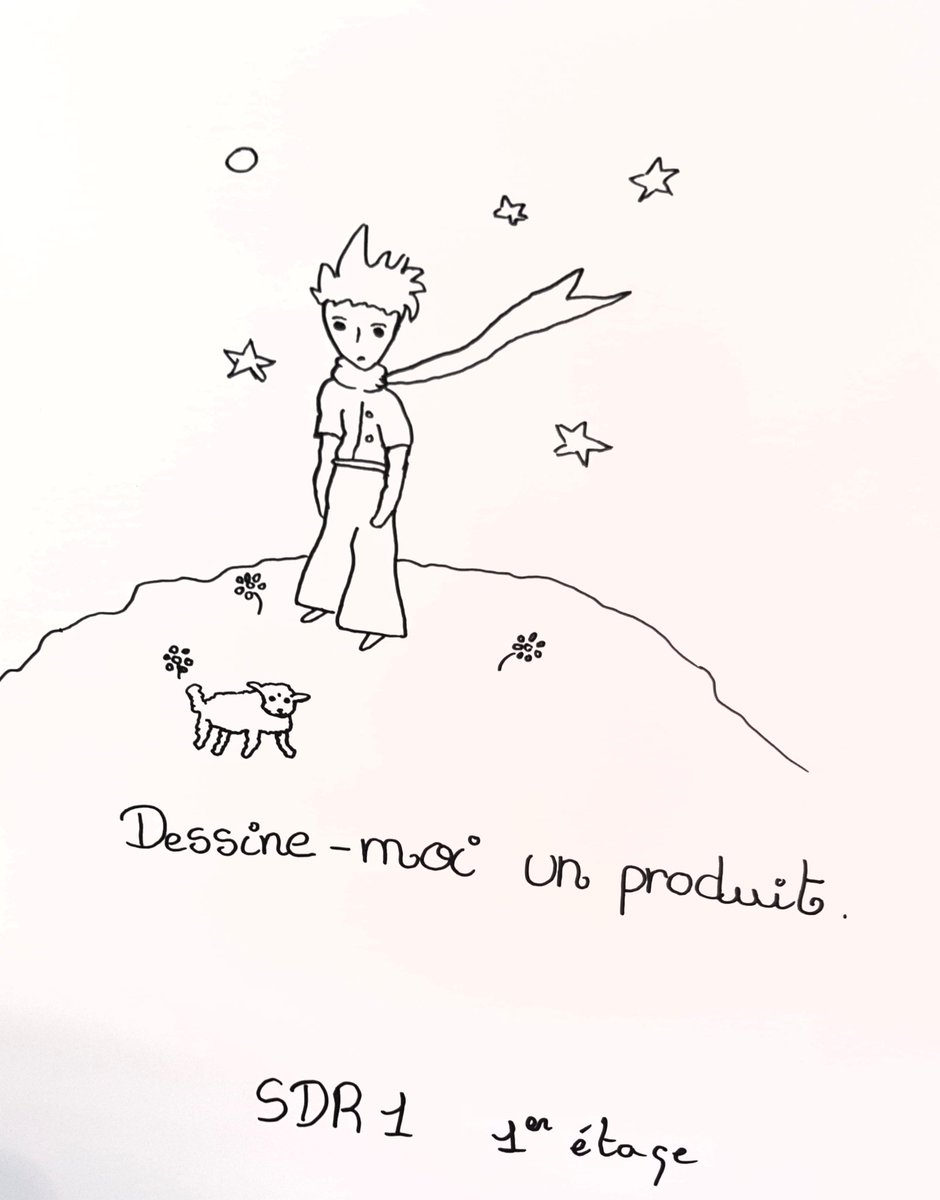 Dessine-moi un produit.
SDR 1 1er étage